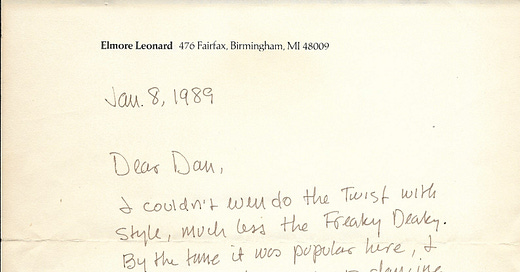 Elmore Leonard 476 Fairfax, Birmingham, MI 48009
Jan. 8, 1989
Dear Dan,
I couldn't even do the Twist with
style, much less the Freaky Deaky.
By the time it was popular here, I
dancing